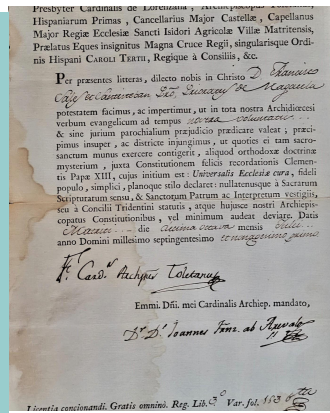 Presbyter Cardinalis de Lorenzana, Archiepiscopus Toletanus,
Hispaniarum Primas, Cancellarius Major Castellæ, Capellanus
Major Regiæ Ecclesiæ Sancti Isidori Agricolæ Villæ Matritensis,
Prælatus Eques insignitus Magna Cruce Regii, singularisque Ordi-
nis Hispani CAROLI TERTII, Regique à Consiliis, &c.
Per præsentes litteras, dilecto nobis in Christo D. Francisco
de Magacela
potestatem facimus, ac impertimur, ut in tota nostra Archidiœcesi
verbum evangelicum ad tempus nostra voluntatis
& sine jurium parochialium præjudicio prædicare valeat; præci-
pimus insuper, ac districte injungimus, ut quoties ei tam sacro-
sanctum munus exercere contigerit, aliquod orthodoxæ doctrinæ
mysterium, juxta Constitutionem felicis recordationis Clemen-
tis Papæ XIII, cujus initium est: Universalis Ecclesiæ cura, fideli
populo, simplici, planoque stilo declaret: nullatenusque à Sacrarum
Scripturatum sensu, & Sanctorum Patrum ac Interpretum vestigiis,
seu à Concilii Tridentini statutis, atque hujusce nostri Archiepis-
copatus Constitutionibus, vel minimum audeat deviare. Datis
Matriti die decima octava mensis
anno Domini millesimo septingentesimo nonagesimo primo
F. Card.s Archpus Toletanus
Emmi. Dñi. mei Cardinalis Archiep. mandato,
Dr. Dn. Joannes Fern. ab Arevalo
Licentia concionandi. Gratis omninò. Reg. Lib. 3.º Var. fol. 153